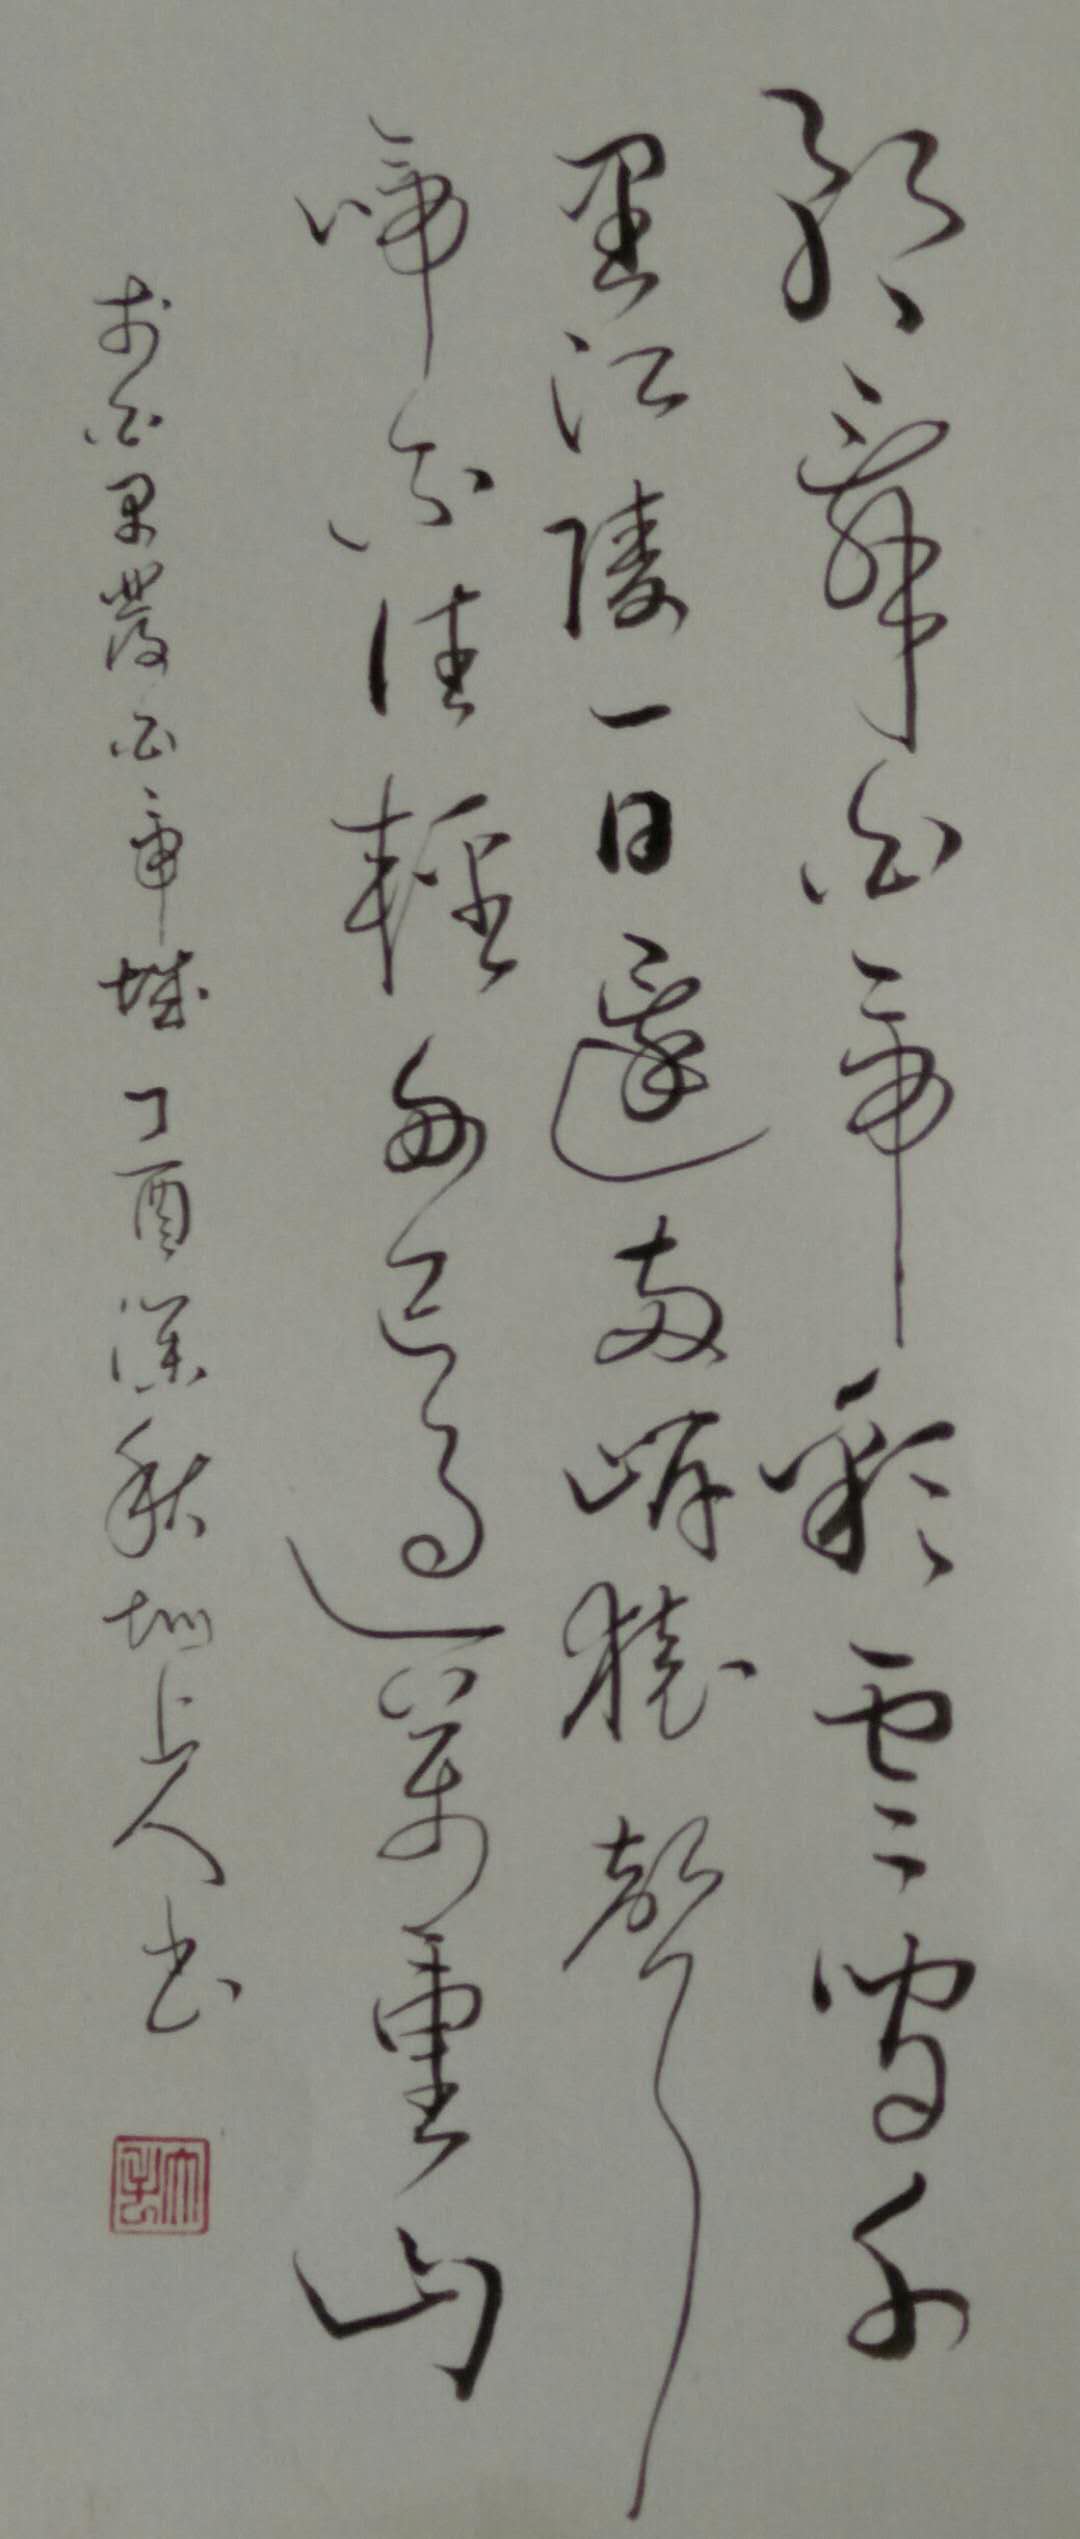 朝辭白帝彩雲間千
里江陵一日還兩岸猿聲
啼不住輕舟已過萬重山
李白早發白帝城 丁酉深秋圳上人书